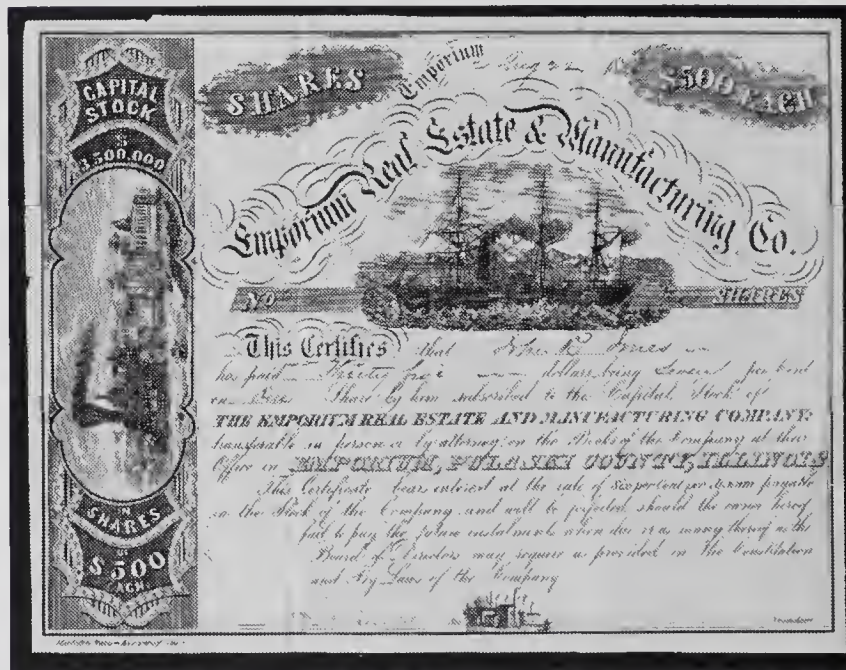 CAPITAL
STOCK
$
3,500,000
IN
SHARES
OF
$500
EACH
SHARES
Emporium
$500 EACH
Emporium Real Estate & Manufacturing Co.
No
SHARES
This Certifies that John
has paid Thirty five dollars being Seven per Cent
on Share by him subscribed to the Capital Stock of
THE EMPORIUM REAL ESTATE AND MANUFACTURING COMPANY:
transferable in person or by attorney on the Books of the Company at their
Office in EMPORIUM, PULASKI COUNTY, ILLINOIS
This Certificate bears interest at the rate of Six per Cent per Annum payable
in the Stock of the Company and will be forfeited should the owner hereof
fail to pay the future instalments when due or as many thereof as the
Board of Directors may require as provided in the Constitution
and By Laws of the Company